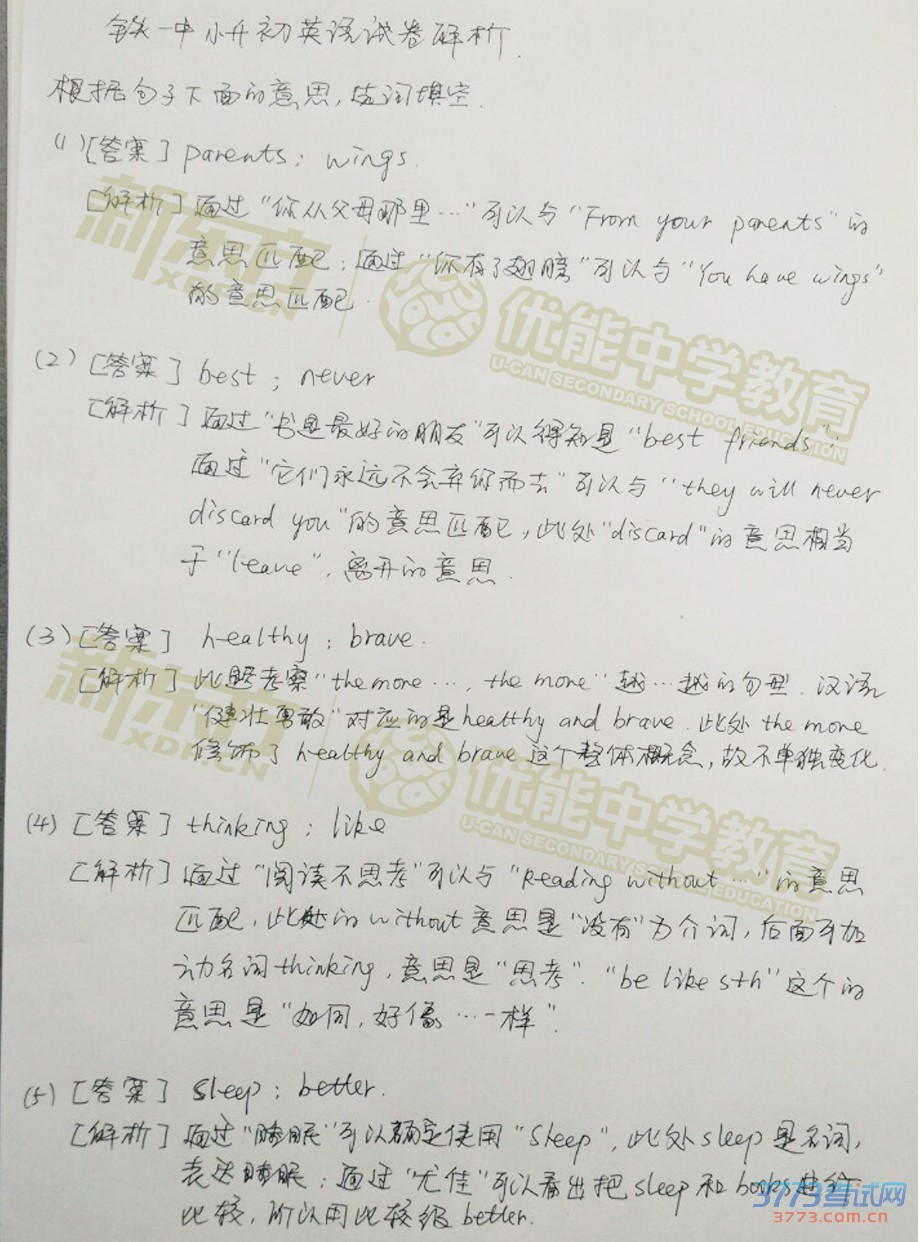 铁一中小升初英语试卷解析.
根据句子下面的意思,选词填空.
(1)[答案] parents; wings.
[解析] 通过"你从父母那里…"可以与"From your parents"的
意思匹配;通过"你有了翅膀"可以与"You have wings"
的意思匹配.
(2) [答案] best ; never
[解析] 通过"书是最好的朋友"可以得知是"best friends";
通过"它们永远不会弃你而去"可以与"they will never
discard you"的意思匹配,此处"discard"的意思相当
于"leave",离开的意思.
(3) [答案] healthy ; brave.
[解析] 此题考察"the more …, the more"越…越的句型. 汉语
"健壮勇敢"对应的是healthy and brave. 此处 the more
修饰了 healthy and brave 这个整体概念,故不单独变化.
(4) [答案] thinking ; like
[解析] 通过"阅读不思考"可以与"Reading without …"的意思
匹配,此处的without意思是"没有"为介词,后面可加
动名词thinking,意思是"思考"."be like sth"这个的
意思是"如同,好像…一样".
(5) [答案] sleep ; better.
[解析] 通过"睡眠"可以确定使用"sleep",此处sleep是名词,
表达睡眠;通过"尤佳"可以看出把sleep和books进行
比较,所以用比较级better.
新东方
XDF.CN
优能中学教育
U-CAN SECONDARY SCHOOL EDUCATION
新东方
XDF.CN
优能中学教育
U-CAN SECONDARY SCHOOL EDUCATION
3773考试网
3773.com.cn